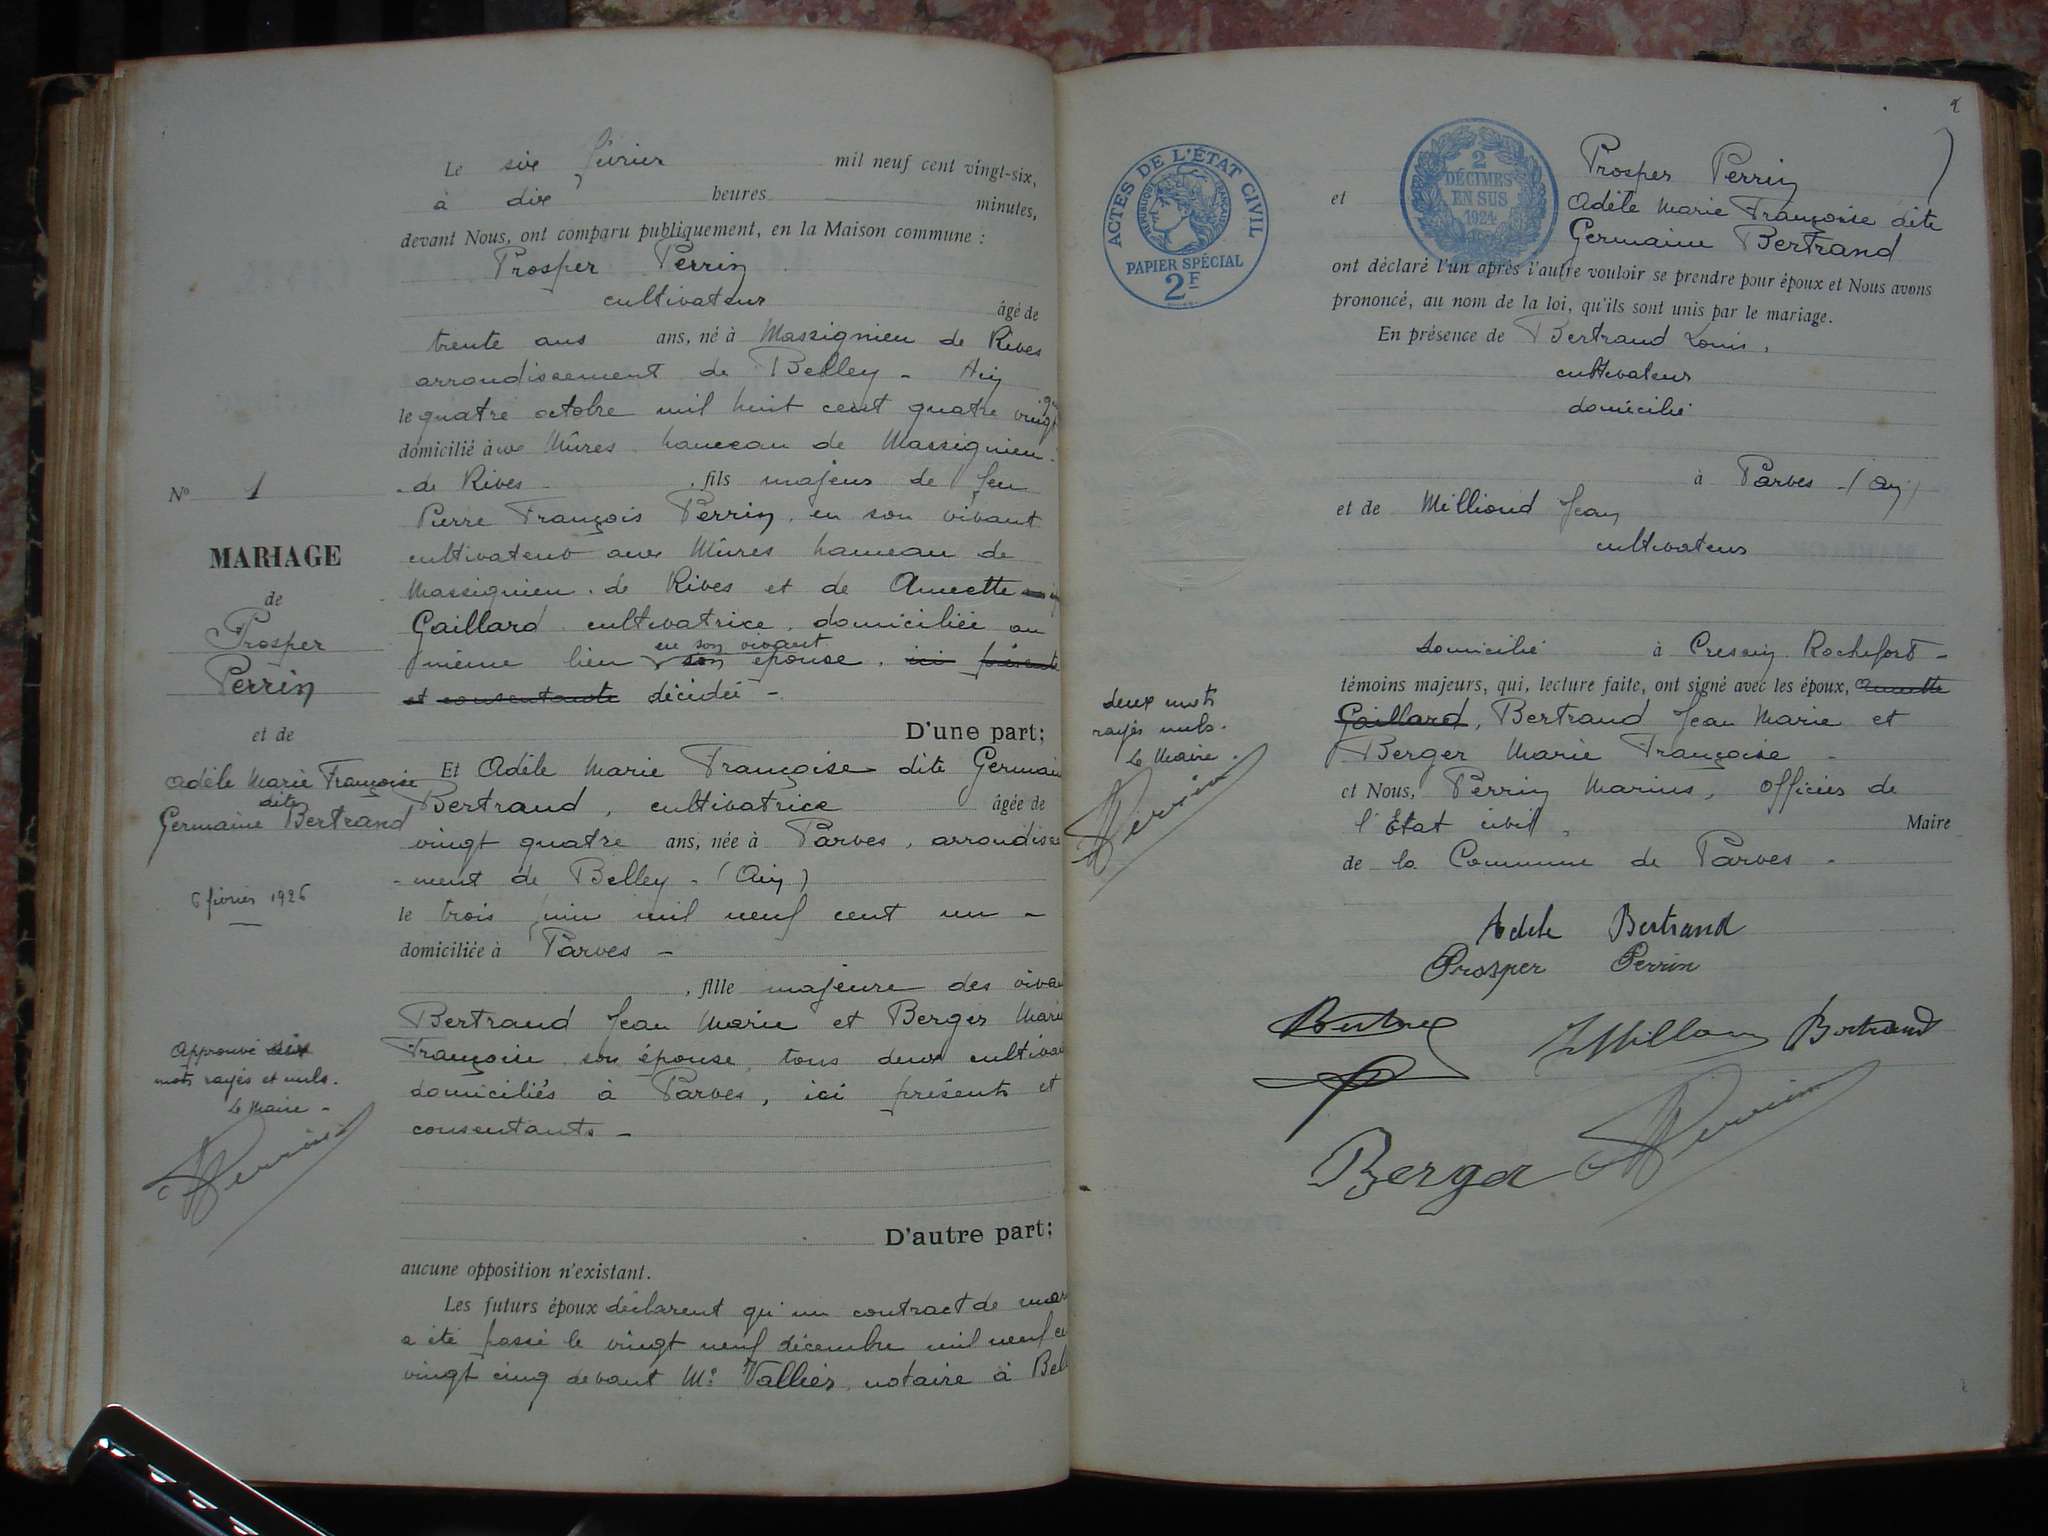 Le six février mil neuf cent vingt-six,
à dix heures minutes,
devant Nous, ont comparu publiquement, en la Maison commune :
Prosper Perrin
cultivateur âgé de
trente ans ans, né à Massignieu de Rives
arrondissement de Belley - Ain
le quatre octobre mil huit cent quatre vingt
domicilié aux Mûres hameau de Massignieu
de Rives - , fils majeur de feu
Pierre François Perrin, en son vivant
cultivateur aux Mûres hameau de
Massignieu de Rives et de Annette
Gaillard cultivatrice domiciliée au
en son vivant
même lieu son épouse, ici présente
et consentante décédée -
D'une part;
Et Adèle Marie Françoise dite Germain
Bertrand, cultivatrice âgée de
vingt quatre ans, née à Parves, arrondisse
-ment de Belley - (Ain)
le trois juin mil neuf cent un -
domiciliée à Parves -
, fille majeure des viva
Bertrand Jean Marie et Berger Marie
Françoise son épouse, tous deux cultiva
domiciliés à Parves, ici présents et
consentants -
D'autre part;
aucune opposition n'existant.
Les futurs époux déclarent qu'un contract de mar
a été passé le vingt neuf décembre mil neuf ce
vingt cinq devant Me Vallier, notaire à Bel
No 1
MARIAGE
de
Prosper
Perrin
et de
Adèle Marie Françoise
dite
Germaine Bertrand
6 février 1926
Approuvé six
mots rayés et nuls.
Le Maire -
Perrin
2
ACTES DE L'ÉTAT CIVIL
RÉPUBLIQUE FRANÇAISE
PAPIER SPÉCIAL
2F
2
DÉCIMES
EN SUS
1924
Prosper Perrin
et Adèle Marie Françoise dite
Germaine Bertrand
ont déclaré l'un après l'autre vouloir se prendre pour époux et Nous avons
prononcé, au nom de la loi, qu'ils sont unis par le mariage.
En présence de Bertrand Louis,
cultivateur
domicilié
à Parves - (Ain)
et de Milliond Jean
cultivateur
domicilié à Cressin Rochefort -
témoins majeurs, qui, lecture faite, ont signé avec les époux, Annette
Gaillard, Bertrand Jean Marie et
Berger Marie Françoise -
et Nous, Perrin Marius, Officier de
l'Etat civil, Maire
de la Commune de Parves -
deux mots
rayés nuls.
Le Maire.
Perrin
Adele Bertrand
Prosper Perrin
Bertrand
Berger Perrin